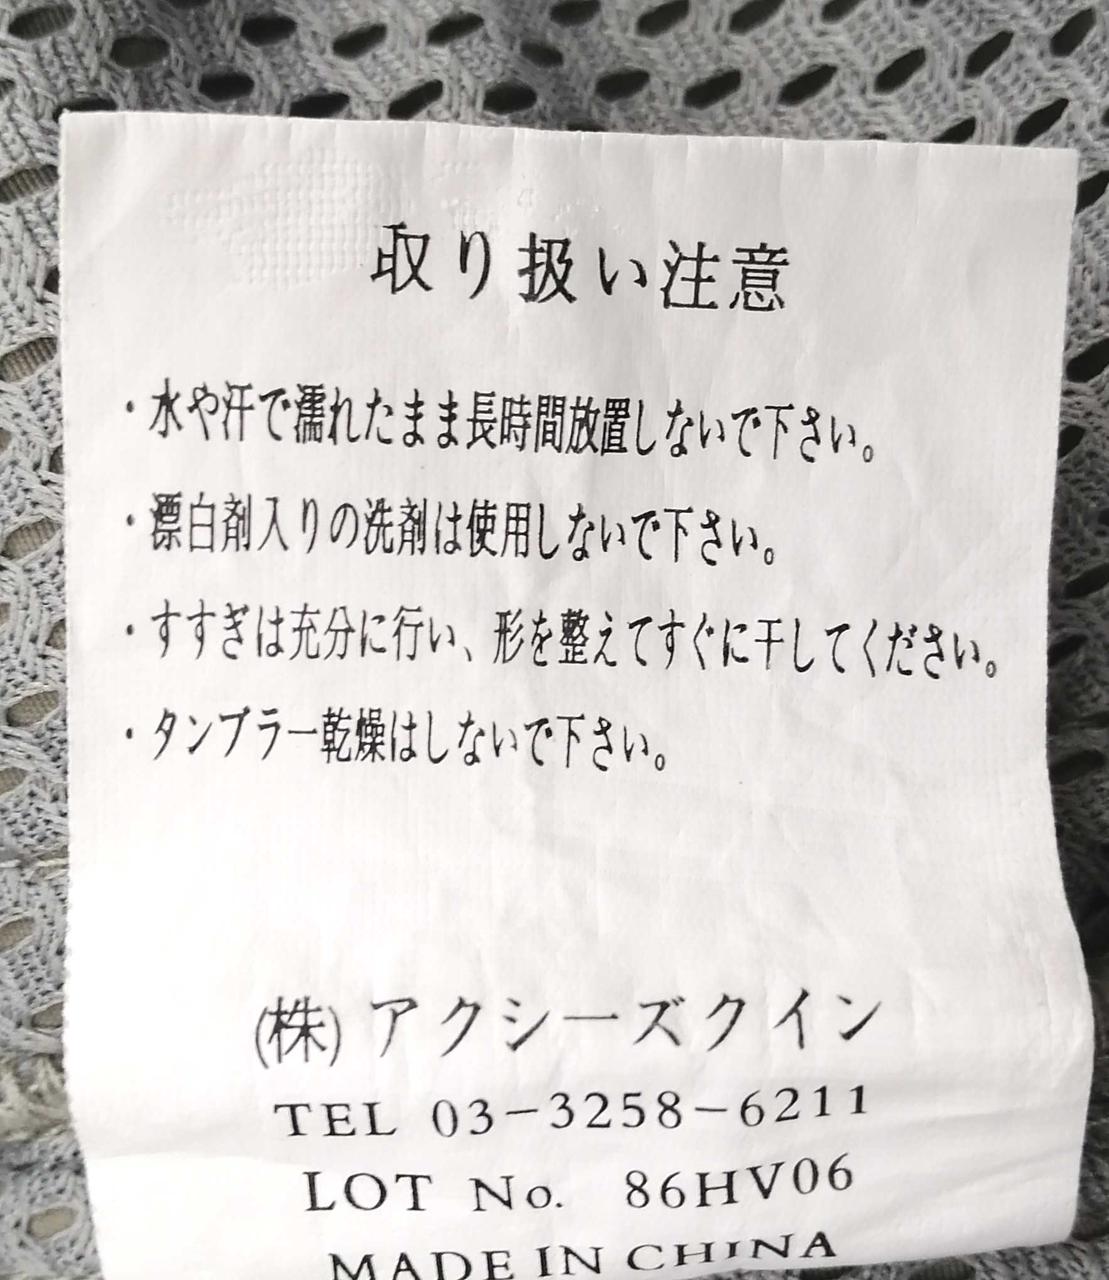 取り扱い注意
・水や汗で濡れたまま長時間放置しないで下さい。
・漂白剤入りの洗剤は使用しないで下さい。
・すすぎは充分に行い、形を整えてすぐに干してください。
・タンブラー乾燥はしないで下さい。
(株)アクシーズクイン
TEL 03-3258-6211
LOT No. 86HV06
MADE IN CHINA